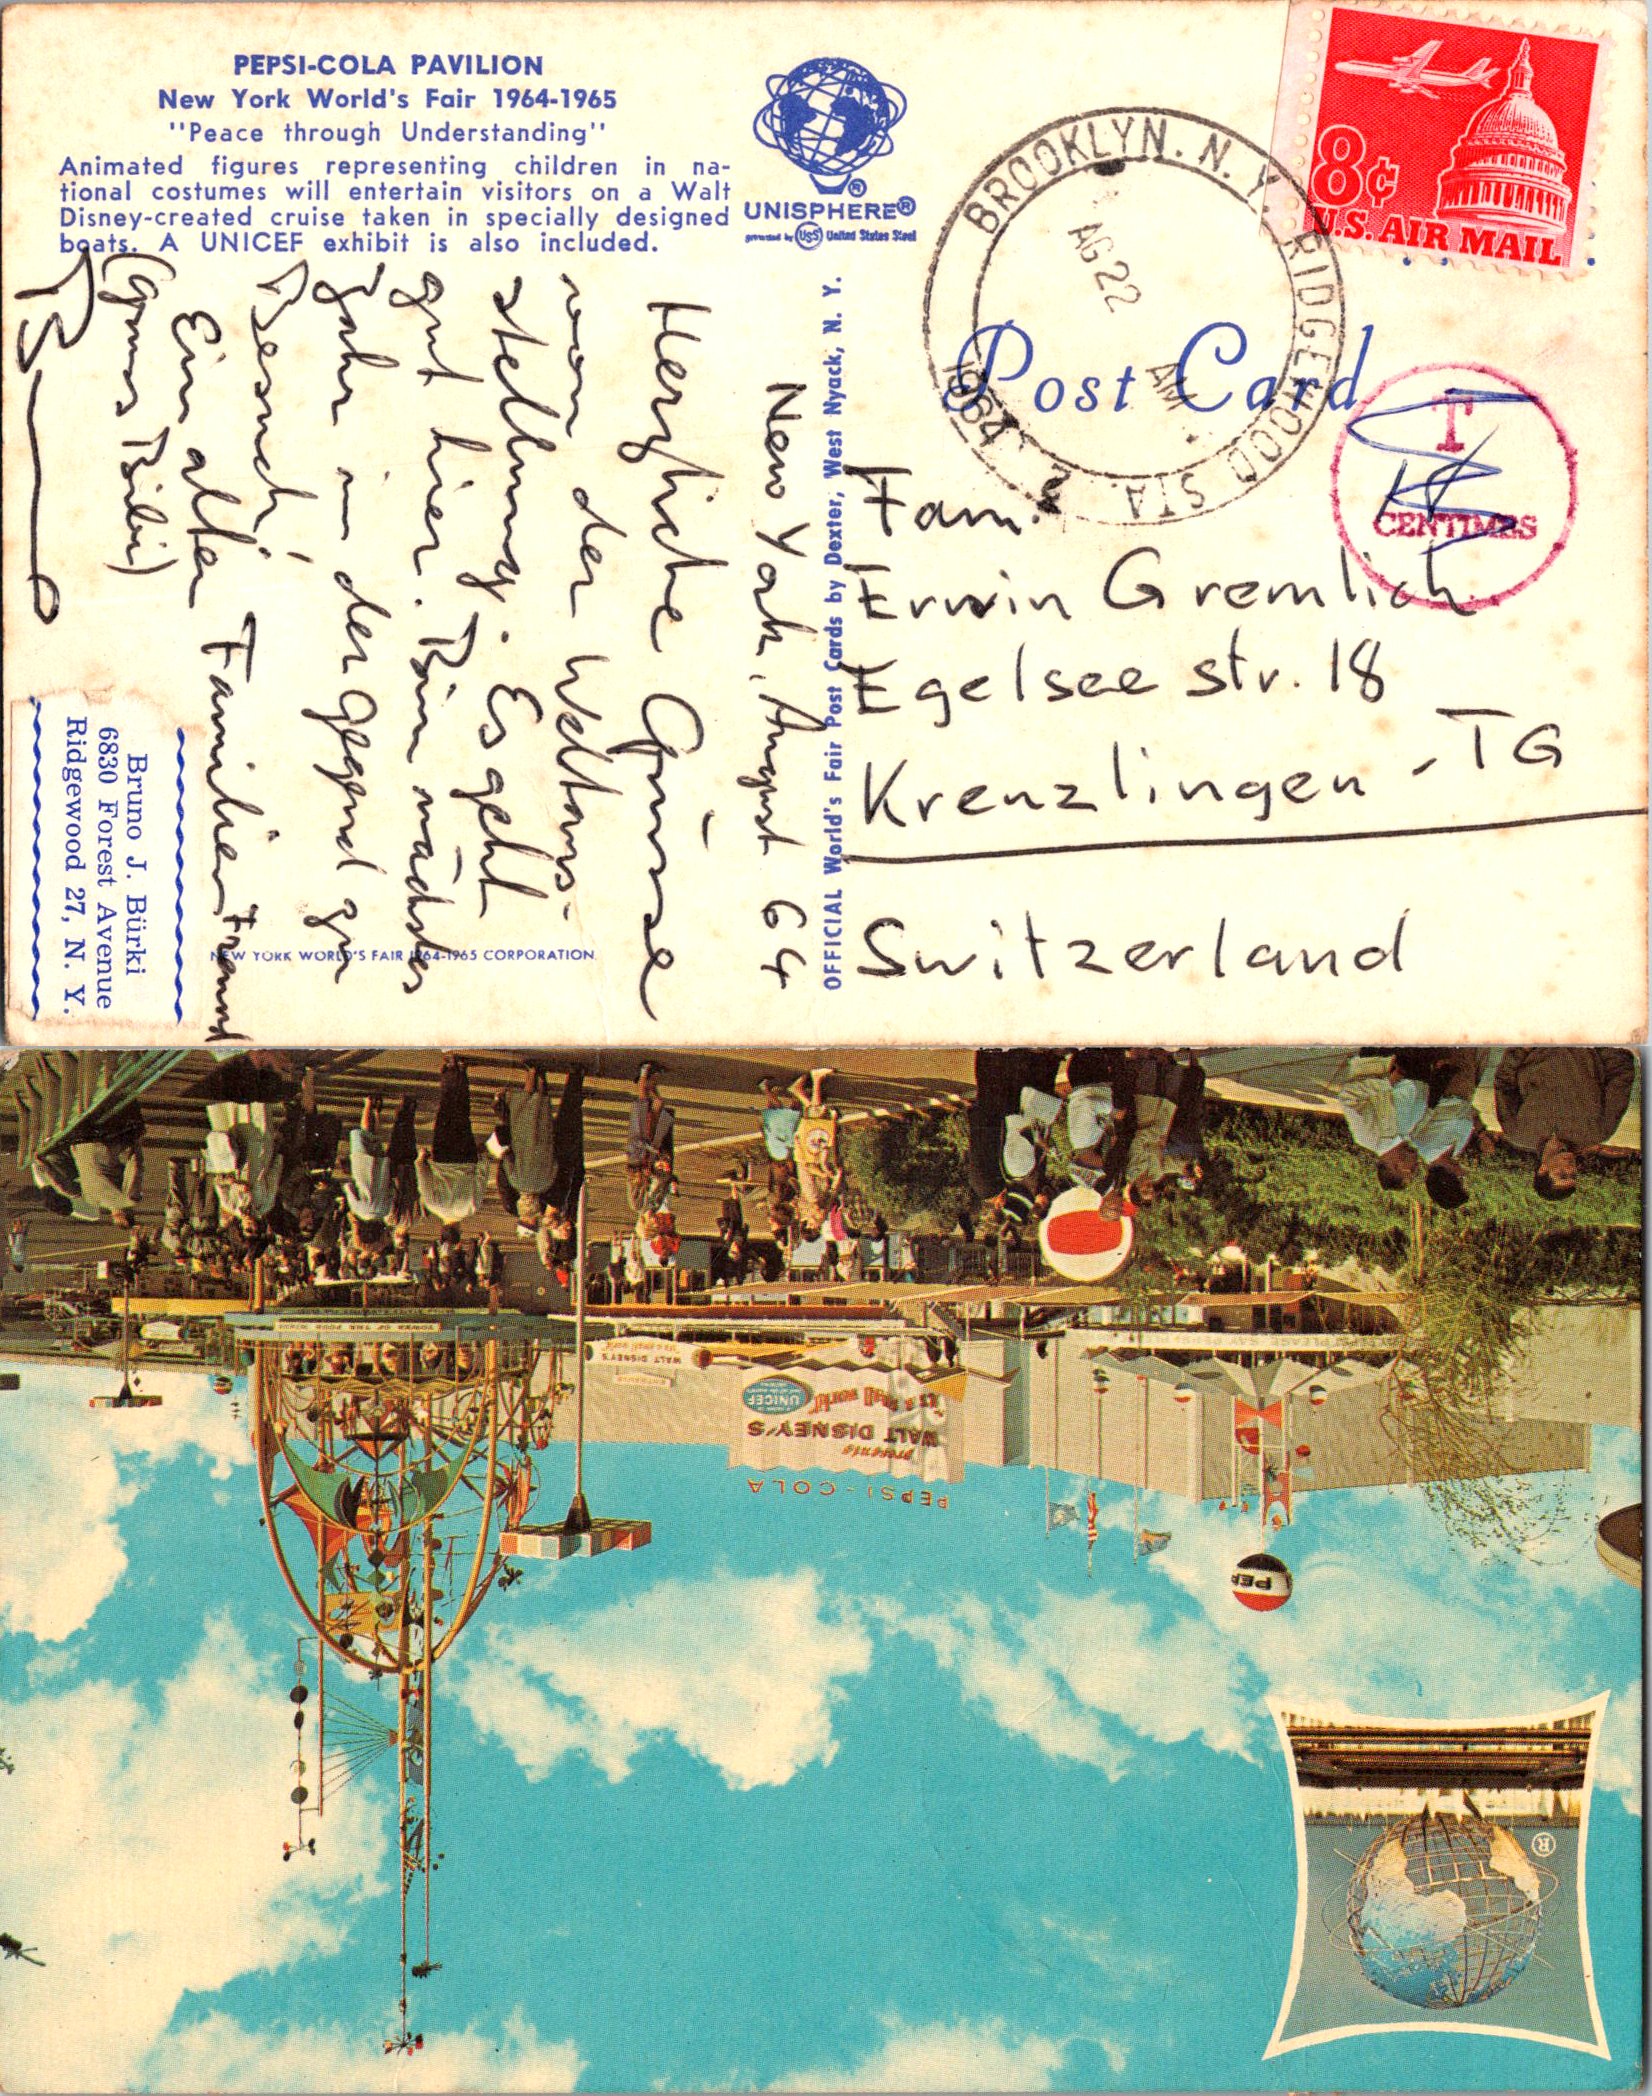 PEPSI-COLA PAVILION
New York World's Fair 1964-1965
"Peace through Understanding"
Animated figures representing children in na-
tional costumes will entertain visitors on a Walt
Disney-created cruise taken in specially designed
boats. A UNICEF exhibit is also included.
UNISPHERE®
presented by USS United States Steel
8¢
U.S. AIR MAIL
BROOKLYN, N.Y. RIDGEWOOD STA.
AG 22
AM
1964
Post Card
T
CENTIMES
OFFICIAL World's Fair Post Cards by Dexter, West Nyack, N. Y.
New York, August 64
Herzliche Grüsse
von der Weltaus-
stellung. Es geht
gut hier. Bin nächstes
Jahr in der Gegend zu
Besuch!
Ein alter Familienfreund
Bruno J. Bürki
6830 Forest Avenue
Ridgewood 27, N. Y.
NEW YORK WORLD'S FAIR 1964-1965 CORPORATION
Fam.
Erwin Gremlich
Egelsee str. 18
Kreuzlingen - TG
Switzerland
TOWER OF THE FOUR WINDS
WALT DISNEY'S
PEPSI-COLA
presents
WALT DISNEY'S
it's a small world
UNICEF
PEP
®